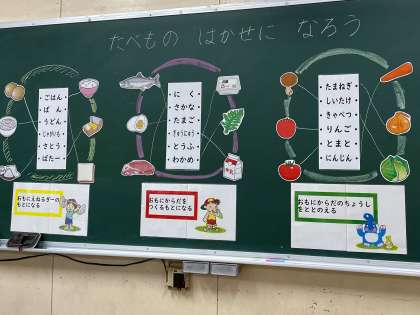 たべもの はかせに なろう
・ごはん
・ぱん
・うどん
・じゃがいも
・さとう
・ばたー
・にく
・さかな
・たまご
・ぎゅうにゅう
・とうふ
・わかめ
・たまねぎ
・しいたけ
・きゃべつ
・りんご
・とまと
・にんじん
おもにえねるぎーの
もとになる
おもにからだを
つくるもとになる
おもにからだのちょうし
をととのえる